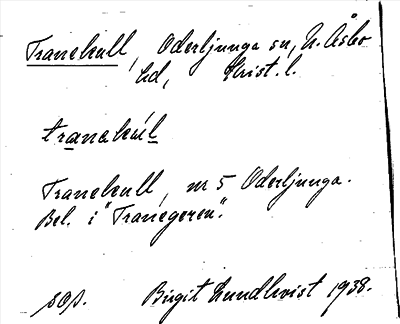 Tranekull, Oderljunga sn, N. Åsbo
hd, Krist. l.
tranekúl
Tranekull, nr 5 Oderljunga.
Bel. i "Tranegeren".
sas.
Birgit Lundkvist 1938.